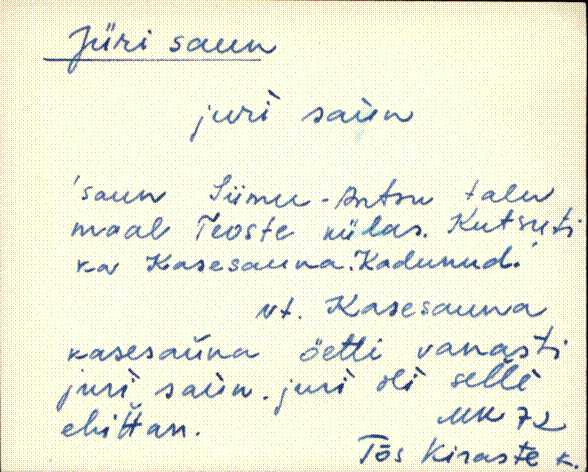 Jüri saun
juri saùn
'saun Siimu-Antsu talu
maal Teoste külas. Kutsuti
ka Kasesauna. Kadunud.'
vt. Kasesauna
kasesaùna öetti vanasti
juri saùn. juri oli selle
ehittan.
MK 72
Tõs Kiraste k.